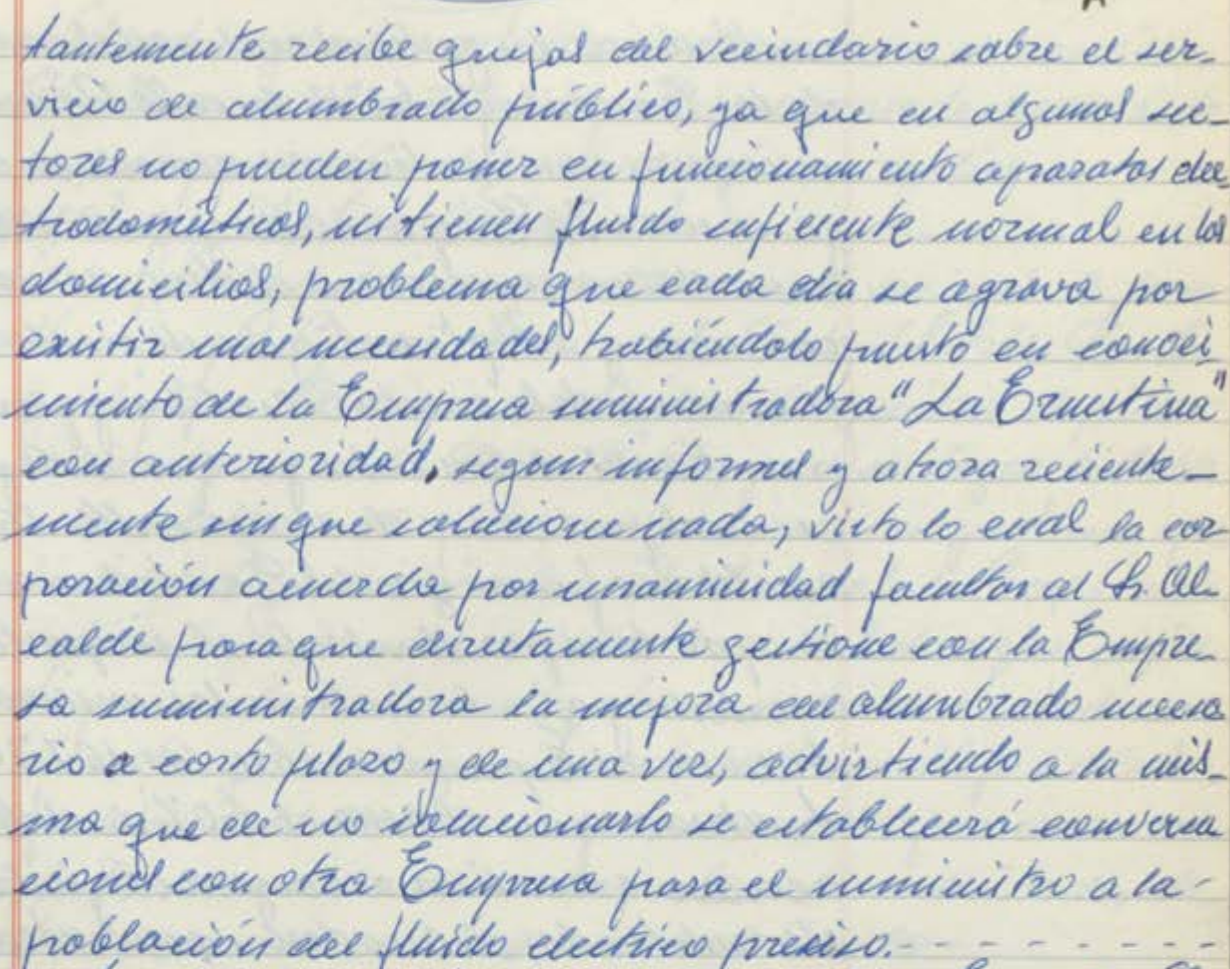 tantemente recibe quejas del vecindario sobre el ser-
vicio de alumbrado público, ya que en algunos sec-
tores no pueden poner en funcionamiento aparatos elec
trodomésticos, ni tienen fluido suficiente normal en los
domicilios, problema que cada dia se agrava por
existir mas necesidades, habiéndolo puesto en conoci
miento de la Empresa suministradora "La Ernestina"
con anterioridad, segun informes y ahora reciente-
mente sin que solucione nada, visto lo cual la cor
poración acuerda por unanimidad facultar al Sr. Al-
calde para que directamente gestione con la Empre-
sa suministradora la mejora del alumbrado necesa
rio a corto plazo y de una vez, advirtiendo a la mis-
ma que de no solucionarlo se establecerá conversa
ciones con otra Empresa para el suministro a la
población del fluido electrico preciso. - - - - - - -